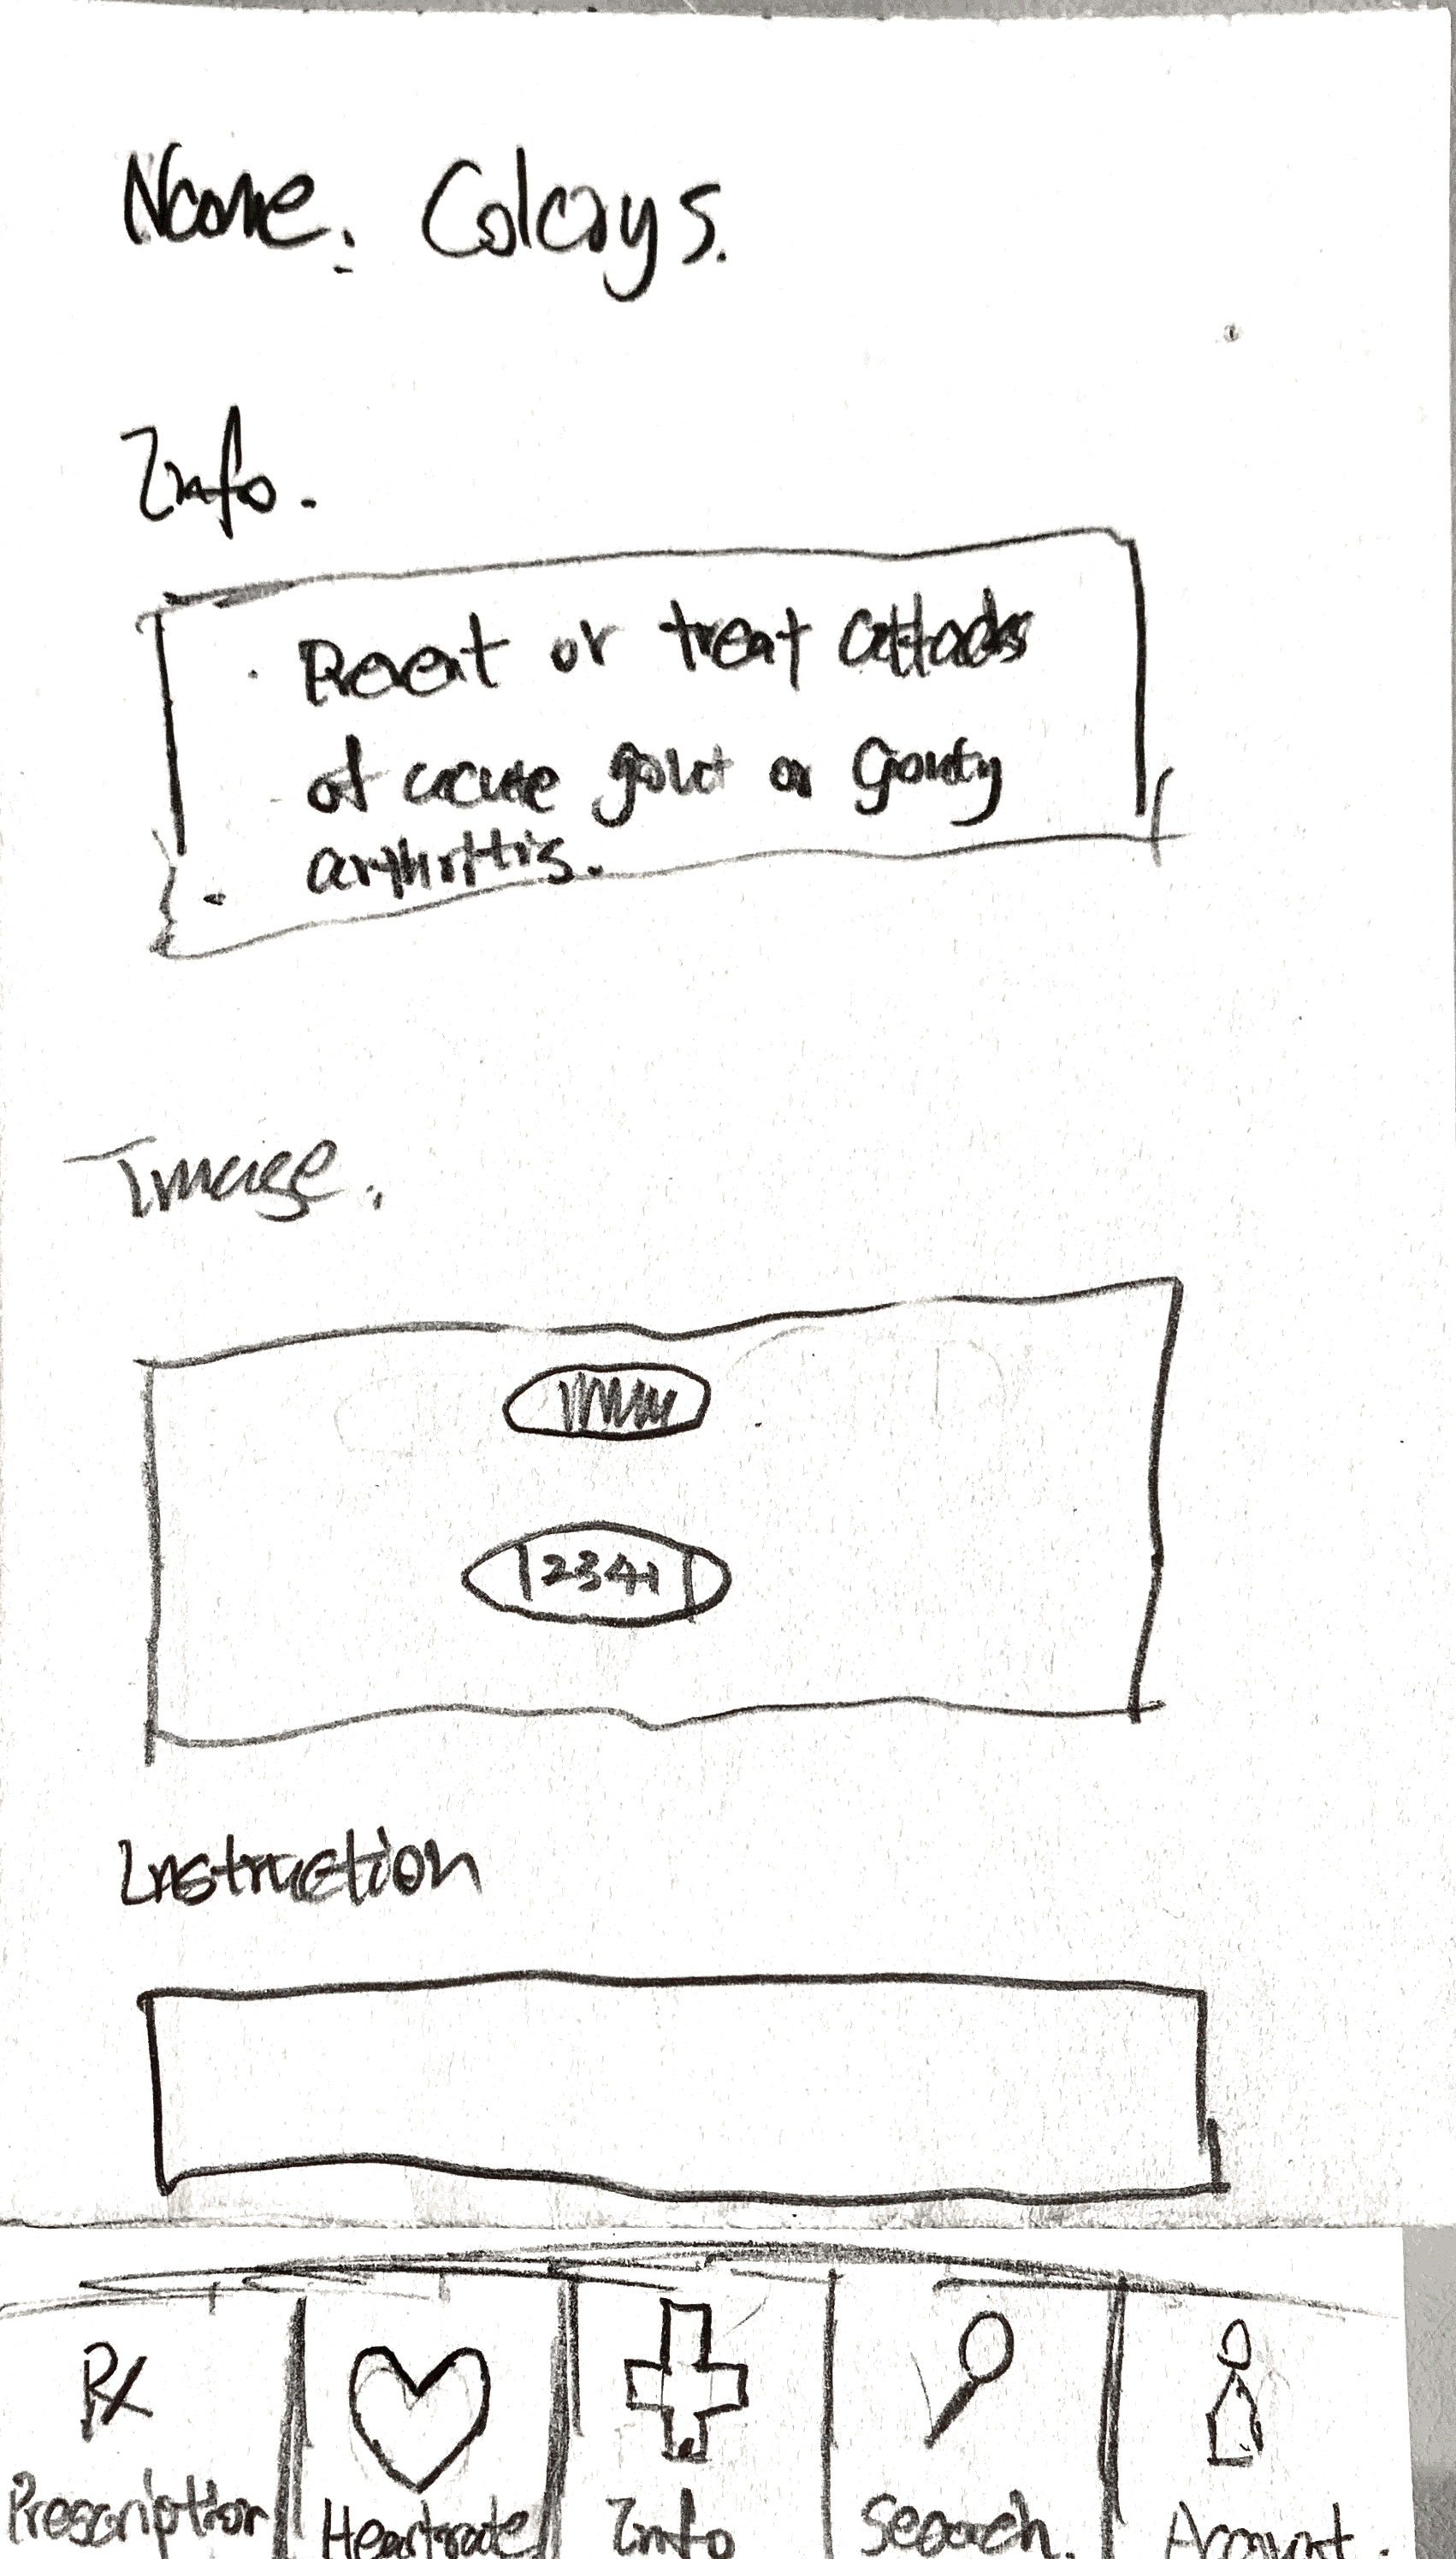 Name: Colcrys.
Info.
Prevent or treat attacks
of acute gout or Gouty
arthrittis.
Image.
1234
Instruction
Rx
Prescription
Heartrate
Info
Search.
Account.